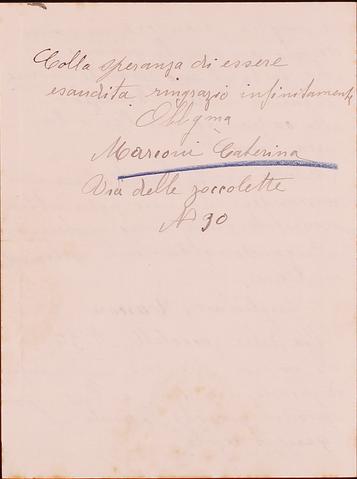 Colla speranza di essere
esaudita ringrazio infinitamente
Obbgma
Marconi Caterina
Via delle zoccolette
N 30